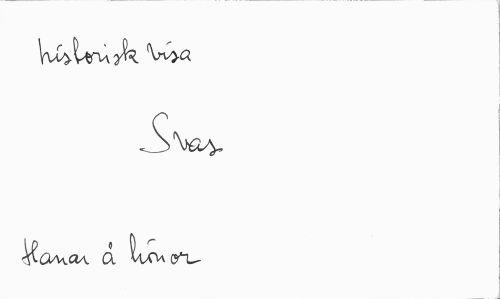 historisk visa
Svas
Hanar å hönor